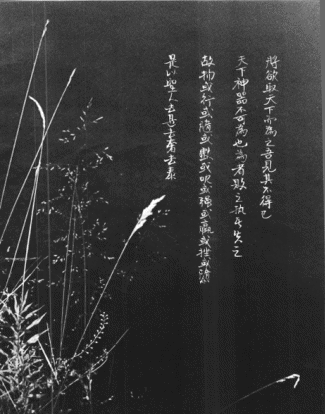 將欲取天下而為之吾見其不得已
天下神器不可為也為者敗之執者失之
故物或行或隨或歔或吹或強或羸或挫或隳
是以聖人去甚去奢去泰